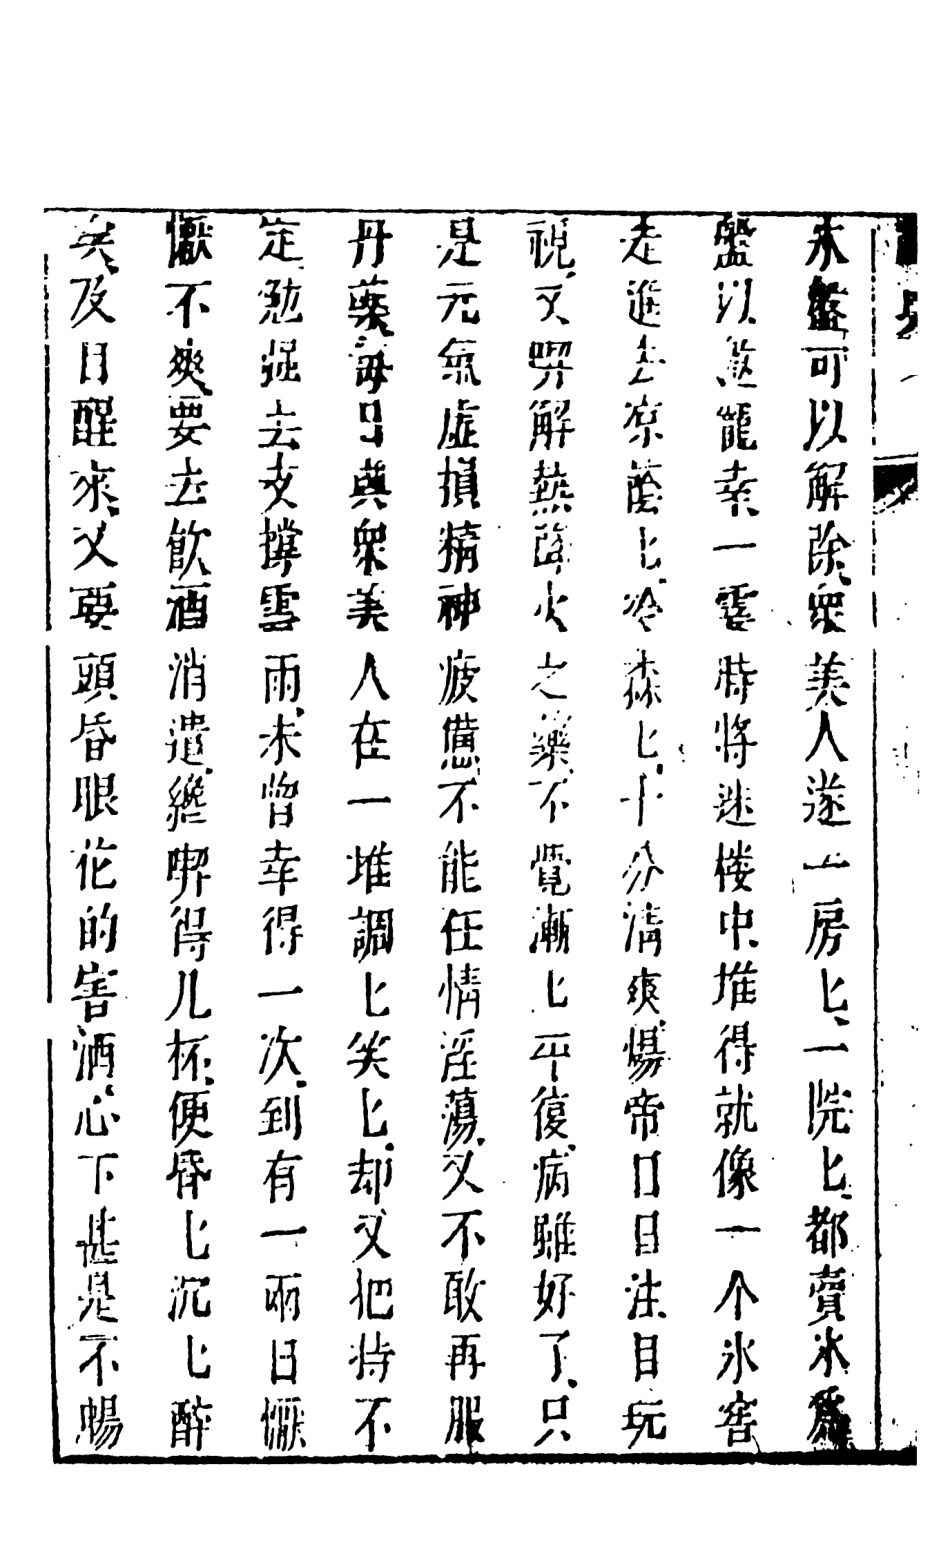 氷盤可以解除、衆美人遂一房匕、一院匕、都賣氷爲
盤以邀寵幸一霎時將迷樓中、堆得就像一个氷窖
走進去凉蔭匕、冷森匕、十分清爽、煬帝日日注目玩
視、又喫解熱降火之藥、不覺漸匕平復、病雖好了、只
是元氣虛損精神疲憊、不能任情淫蕩、又不敢再服
丹藥、每日與衆美人在一堆調匕笑匕、却又把持不
定勉强去支撐雲雨、未曾幸得一次、到有一兩日懨
懨不爽、要去飲酒消遣、纔喫得几杯、便昏匕沉匕醉
矣、及日醒來、又要頭昏眼花的害酒、心下甚是不暢